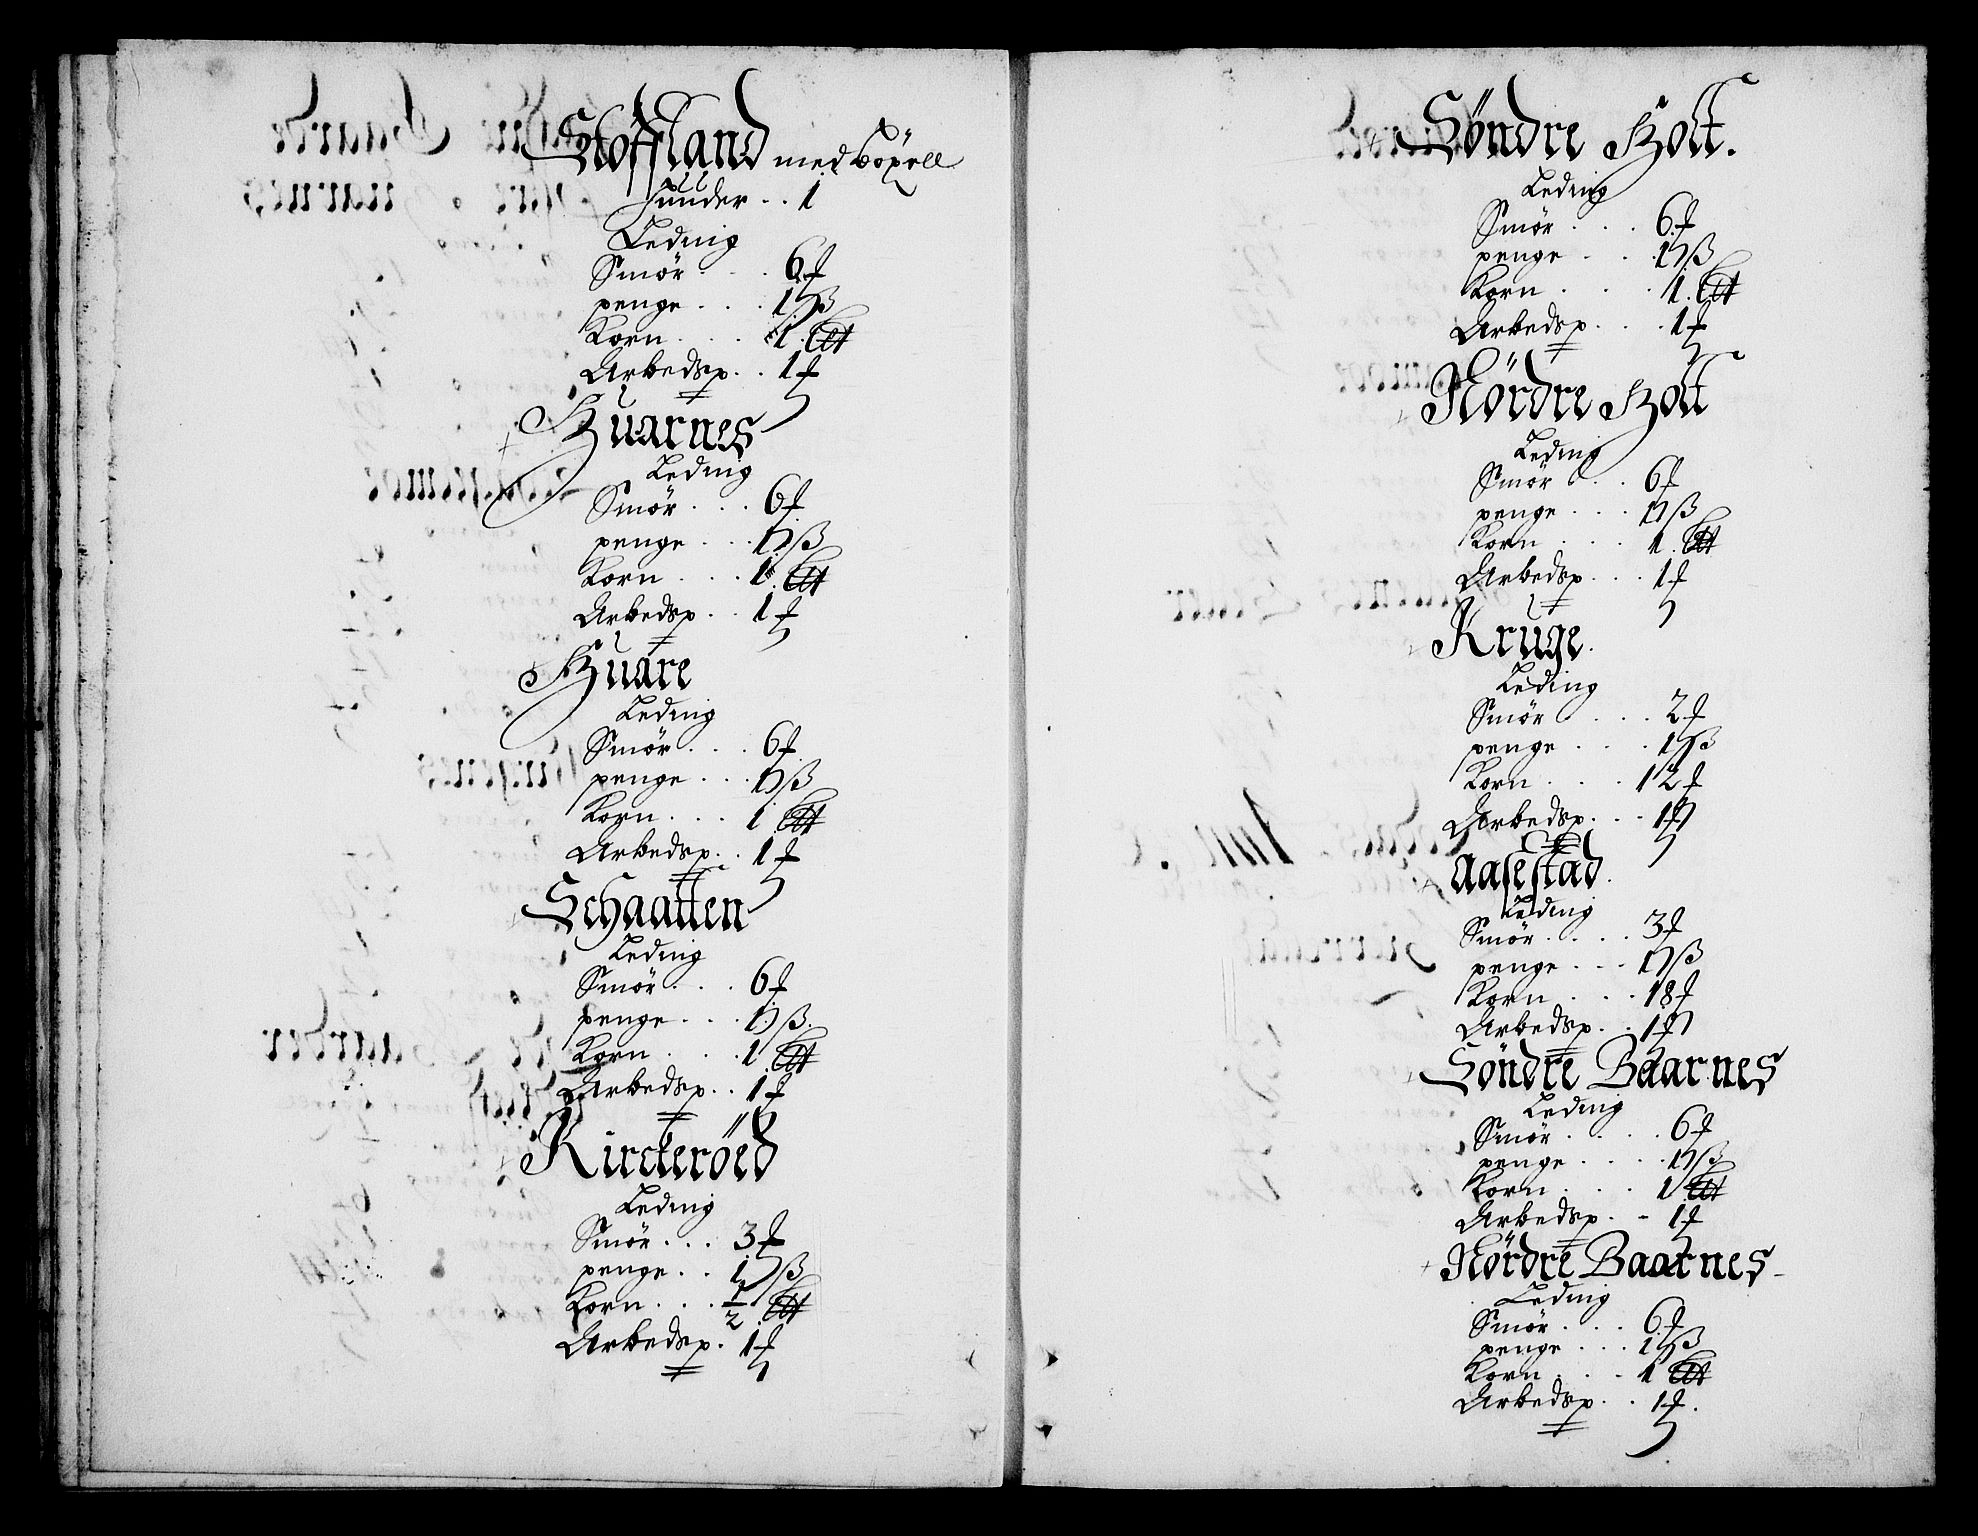 Stoffland med böxell
Huuder . . 1
Leding
Smör . . . 6 ℔
penge . . . 1½ ß
Korn . . . 1 Ett
Arbedsp. . . 1 ℔
Huarnes
Leding
Smör . . . 6 ℔
penge . . . 1½ ß
Korn . . . 1 Ett
Arbedsp. . . 1 ℔
Huare
Leding
Smör . . . 6 ℔
penge . . . 1½ ß
Korn . . . 1 Ett
Arbedsp. . . 1 ℔
Schaatten
Leding
Smör . . . 6 ℔
penge . . . 1½ ß.
Korn . . . 1 Ett
Arbedsp. . . 1 ℔
Kirckeröed
Leding
Smör . . . 3 ℔
penge . . 1½ ß
Korn . . . ½ Ett
Arbedsp. 1 ℔
Söndre Holt.
Leding
Smör . . . 6 ℔
penge . . . 1½ ß
Korn . . . 1 Ett
Arbedsp. . . . 1 ℔
Nördre Holt
Leding
Smör . . . 6 ℔
penge . . . 1½ ß
Korn . . . 1 Ett
Arbedsp. . . . 1 ℔
Kruge.
Leding
Smör . . . . 2 ℔
penge . . . . 1½ ß
Korn . . . . 12 ℔
Arbedsp. . . . 1 ℔
Aasestad.
Leding
Smör . . . . 3 ℔
penge . . . 1½ ß
Korn . . . 18 ℔
Arbedsp. . . 1 ℔
Söndre Baarnes
Leding
Smör . . . . 6 ℔
penge . . . . 1½ ß
Korn . . . 1 Ett
Arbedsp. . . 1 ℔
Nördre Baarnes
Leding
Smör . . . 6 ℔
penge . . . 1½ ß
Korn . . . 1 Ett
Arbedsp. . . 1 ℔.